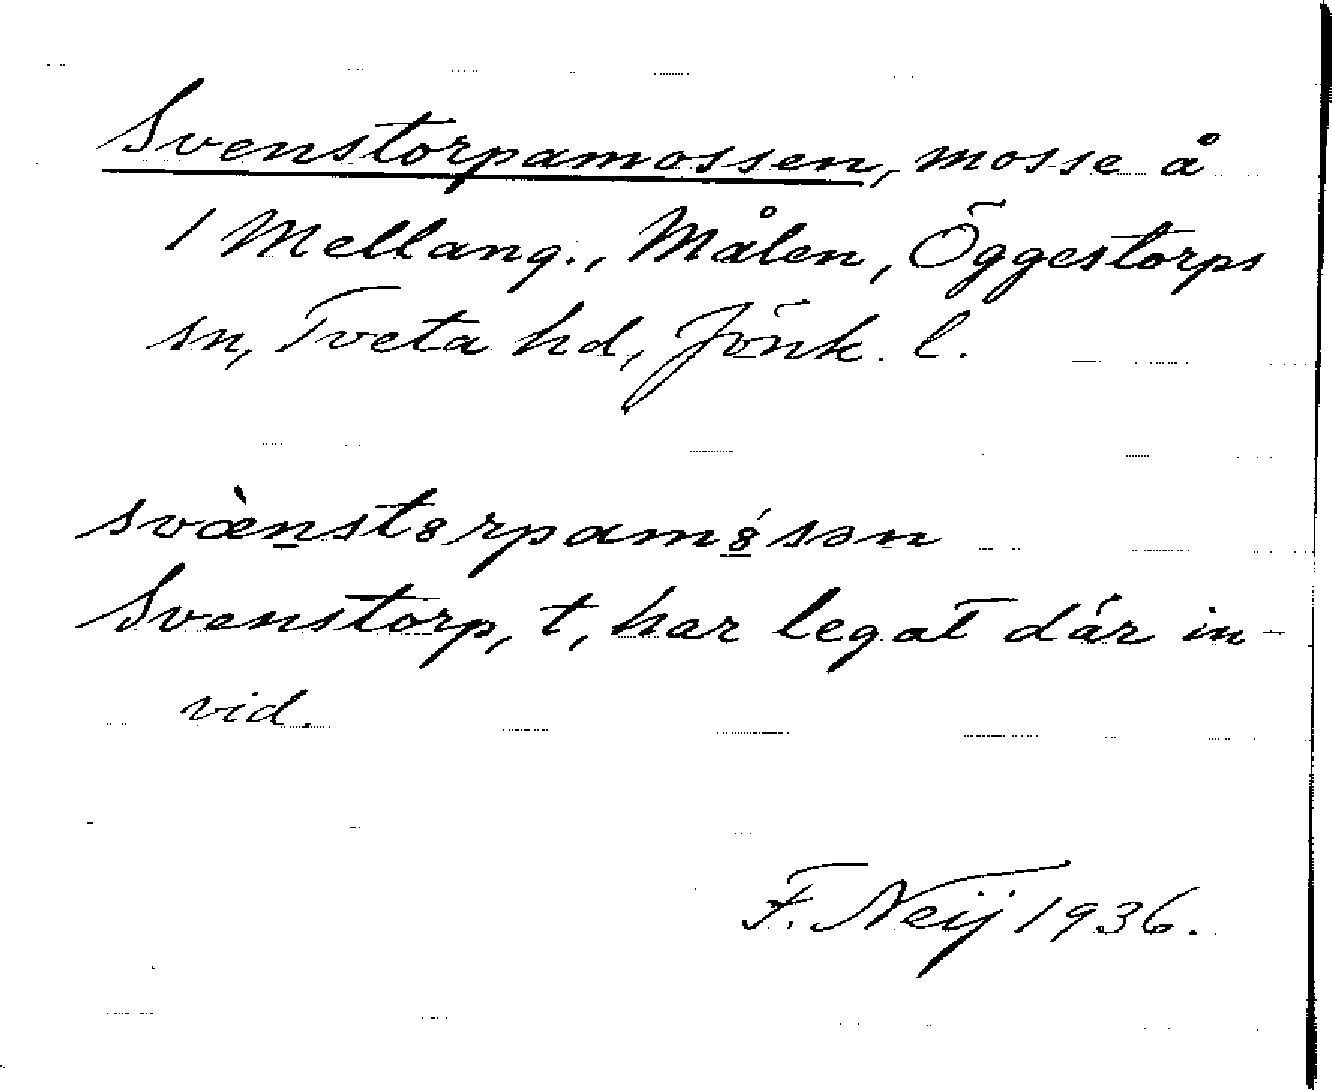 Svenstorpamossen, mosse å
1 Mellang., Målen, Öggestorps
sn, Tveta hd, Jönk. l.
svæ̀nstȣrpamȣ́sən
Svenstorp, t, har legat där in-
vid.
F. Neij 1936.